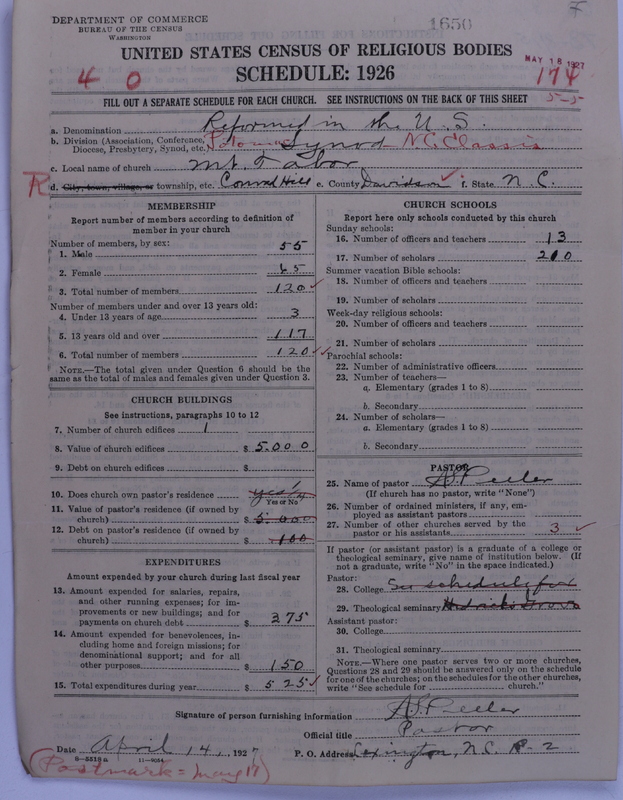 DEPARTMENT OF COMMERCE
BUREAU OF THE CENSUS
WASHINGTON
1650
UNITED STATES CENSUS OF RELIGIOUS BODIES
SCHEDULE: 1926
MAY 18 1927
4 0
174
FILL OUT A SEPARATE SCHEDULE FOR EACH CHURCH. SEE INSTRUCTIONS ON THE BACK OF THIS SHEET
5-5
a. Denomination Reformed in the U.S.
b. Division (Association, Conference, Diocese, Presbytery, Synod, etc.) Potomac Synod N.C. Classis
c. Local name of church Mt. Tabor
R d. City, town, village, or township, etc. Conrad Hill e. County Davidson f. State N.C.
MEMBERSHIP
Report number of members according to definition of
member in your church
Number of members, by sex:
1. Male 55
2. Female 65
3. Total number of members 120
Number of members under and over 13 years old:
4. Under 13 years of age 3
5. 13 years old and over 117
6. Total number of members 120
NOTE.—The total given under Question 6 should be
same as the total of males and females given under Question 3.
CHURCH BUILDINGS
See instructions, paragraphs 10 to 12
7. Number of church edifices 1
8. Value of church edifices $ 5000
9. Debt on church edifices $
10. Does church own pastor's residence yes 1/4
Yes or No
11. Value of pastor's residence (if owned by
church) $ 5,000
12. Debt on pastor's residence (if owned by
church) $ 100
EXPENDITURES
Amount expended by your church during last fiscal year
13. Amount expended for salaries, repairs,
and other running expenses; for im-
provements or new buildings; and for
payments on church debt $ 375
14. Amount expended for benevolences, in-
cluding home and foreign missions; for
denominational support; and for all
other purposes $ 150
15. Total expenditures during year $ 525
CHURCH SCHOOLS
Report here only schools conducted by this church
Sunday schools:
16. Number of officers and teachers 13
17. Number of scholars 210
Summer vacation Bible schools:
18. Number of officers and teachers
19. Number of scholars
Week-day religious schools:
20. Number of officers and teachers
21. Number of scholars
Parochial schools:
22. Number of administrative officers
23. Number of teachers—
a. Elementary (grades 1 to 8)
b. Secondary
24. Number of scholars—
a. Elementary (grades 1 to 8)
b. Secondary
PASTOR
25. Name of pastor A.S. Peeler
(If church has no pastor, write "None")
26. Number of ordained ministers, if any, em-
ployed as assistant pastors
27. Number of other churches served by the
pastor or his assistants 3
If pastor (or assistant pastor) is a graduate of a college or
theological seminary, give name of institution below. (If
not a graduate, write "No" in the space indicated.)
Pastor:
28. College See schedule for
29. Theological seminary
Assistant pastor:
30. College
31. Theological seminary
NOTE.—Where one pastor serves two or more churches,
Questions 28 and 29 should be answered only on the schedule
for one of the churches; on the schedules for the other churches,
write "See schedule for church."
Signature of person furnishing information A.S. Peeler
Official title Pastor
Date April 14, 1927
P. O. Address Lexington, N.C. R-2
8—5518a 11—9064
(Postmark = May 17)